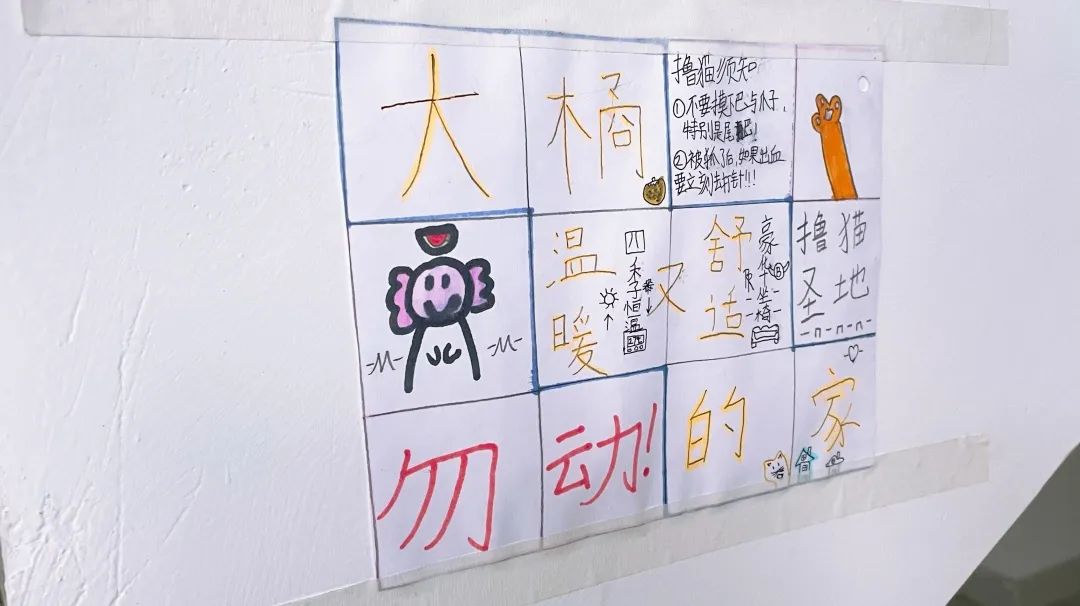 大橘
撸猫须知
①不要摸下巴与爪子,
特别是尾巴!
②被抓了后,如果出血
要立刻去打针!!!
温暖又舒适
四季恒温
豪华坐椅
撸猫
圣地
勿动!
的家